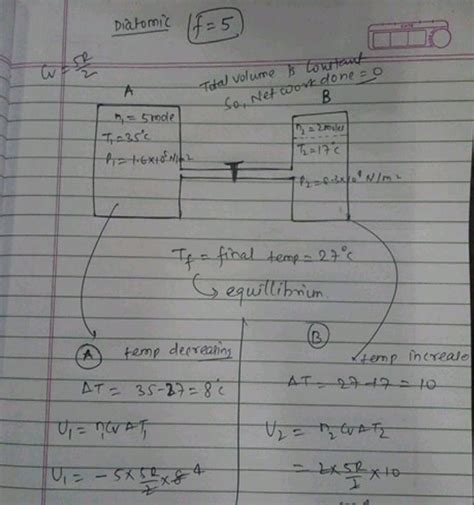 Diatomic f=5
Cv = 5R/2
Total volume is constant
So, Net work done = 0
A
n₁ = 5 mole
T₁ = 35°C
P₁ = 1.6×10⁵ N/m²
B
n₂ = 2 moles
T₂ = 17°C
P₂ = 8.3×10⁴ N/m²
Tf = final temp = 27°C
equillibrium
A temp decreasing
ΔT = 35-27 = 8°C
U₁ = n₁CvΔT₁
U₁ = -5×5R/2×8 4
B
temp increas
ΔT = 27-17 = 10
U₂ = n₂CvΔT₂
= 2×5R/2×10